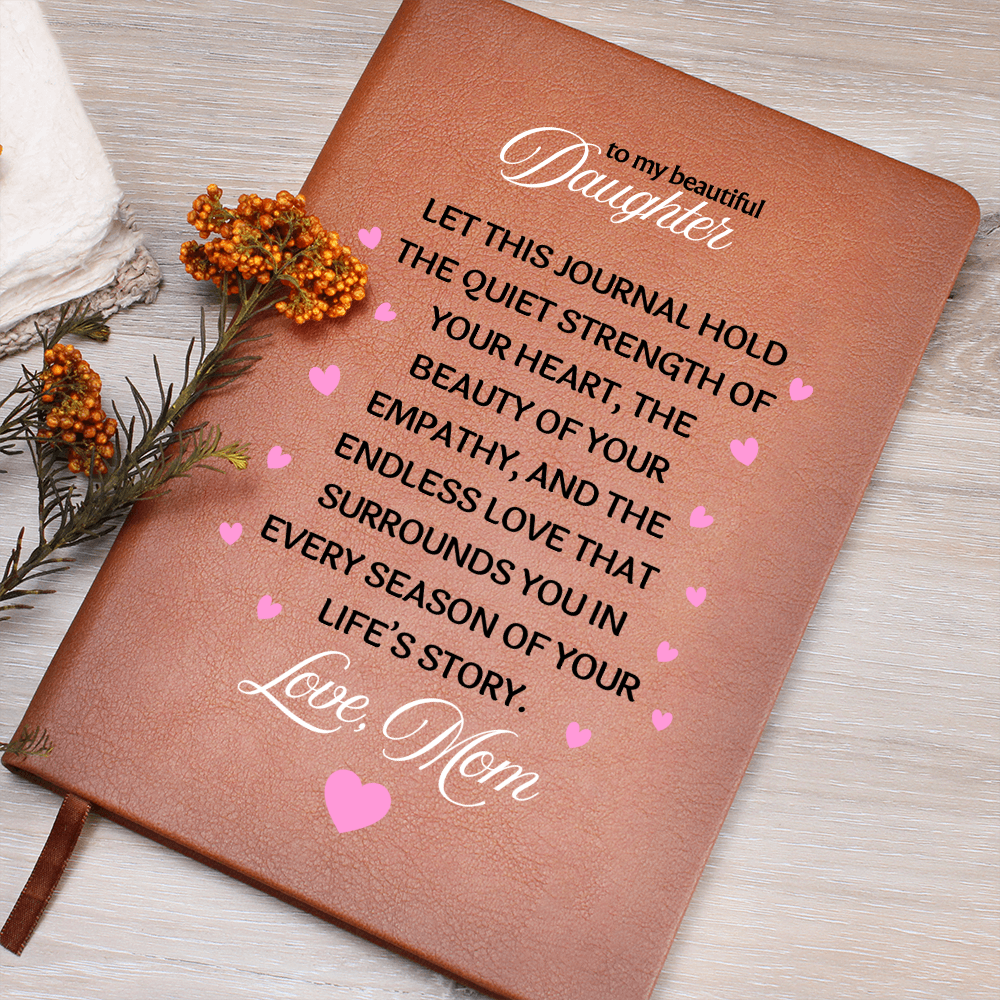 to my beautiful
Daughter
LET THIS JOURNAL HOLD
THE QUIET STRENGTH OF
YOUR HEART, THE
BEAUTY OF YOUR
EMPATHY, AND THE
ENDLESS LOVE THAT
SURROUNDS YOU IN
EVERY SEASON OF YOUR
LIFE’S STORY.
Love, Mom